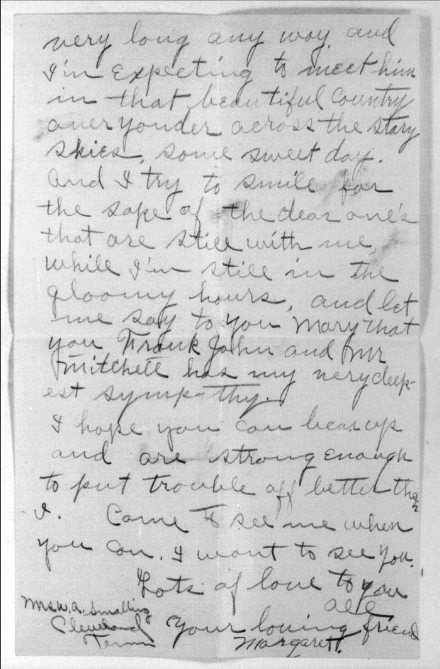 very long any way, and
I'm expecting to meet him
in that beautiful country
over yonder across the stary
skies, some sweet day.
And I try to smile for
the sake of the dear one's
that are still with me,
while I'm still in the
gloomy hours, and let
me say to you Mary that
you Frank John and Mr
Mitchell has my very deep-
est sympathy.
I hope you can bear up
and are strong enough
to put trouble off better than
I. Come to see me when
you can. I want to see you.
Lots of love to you
all
Your loving friend
Margarett.
Mrs W.A. Smalling
Cleveland
Tenn